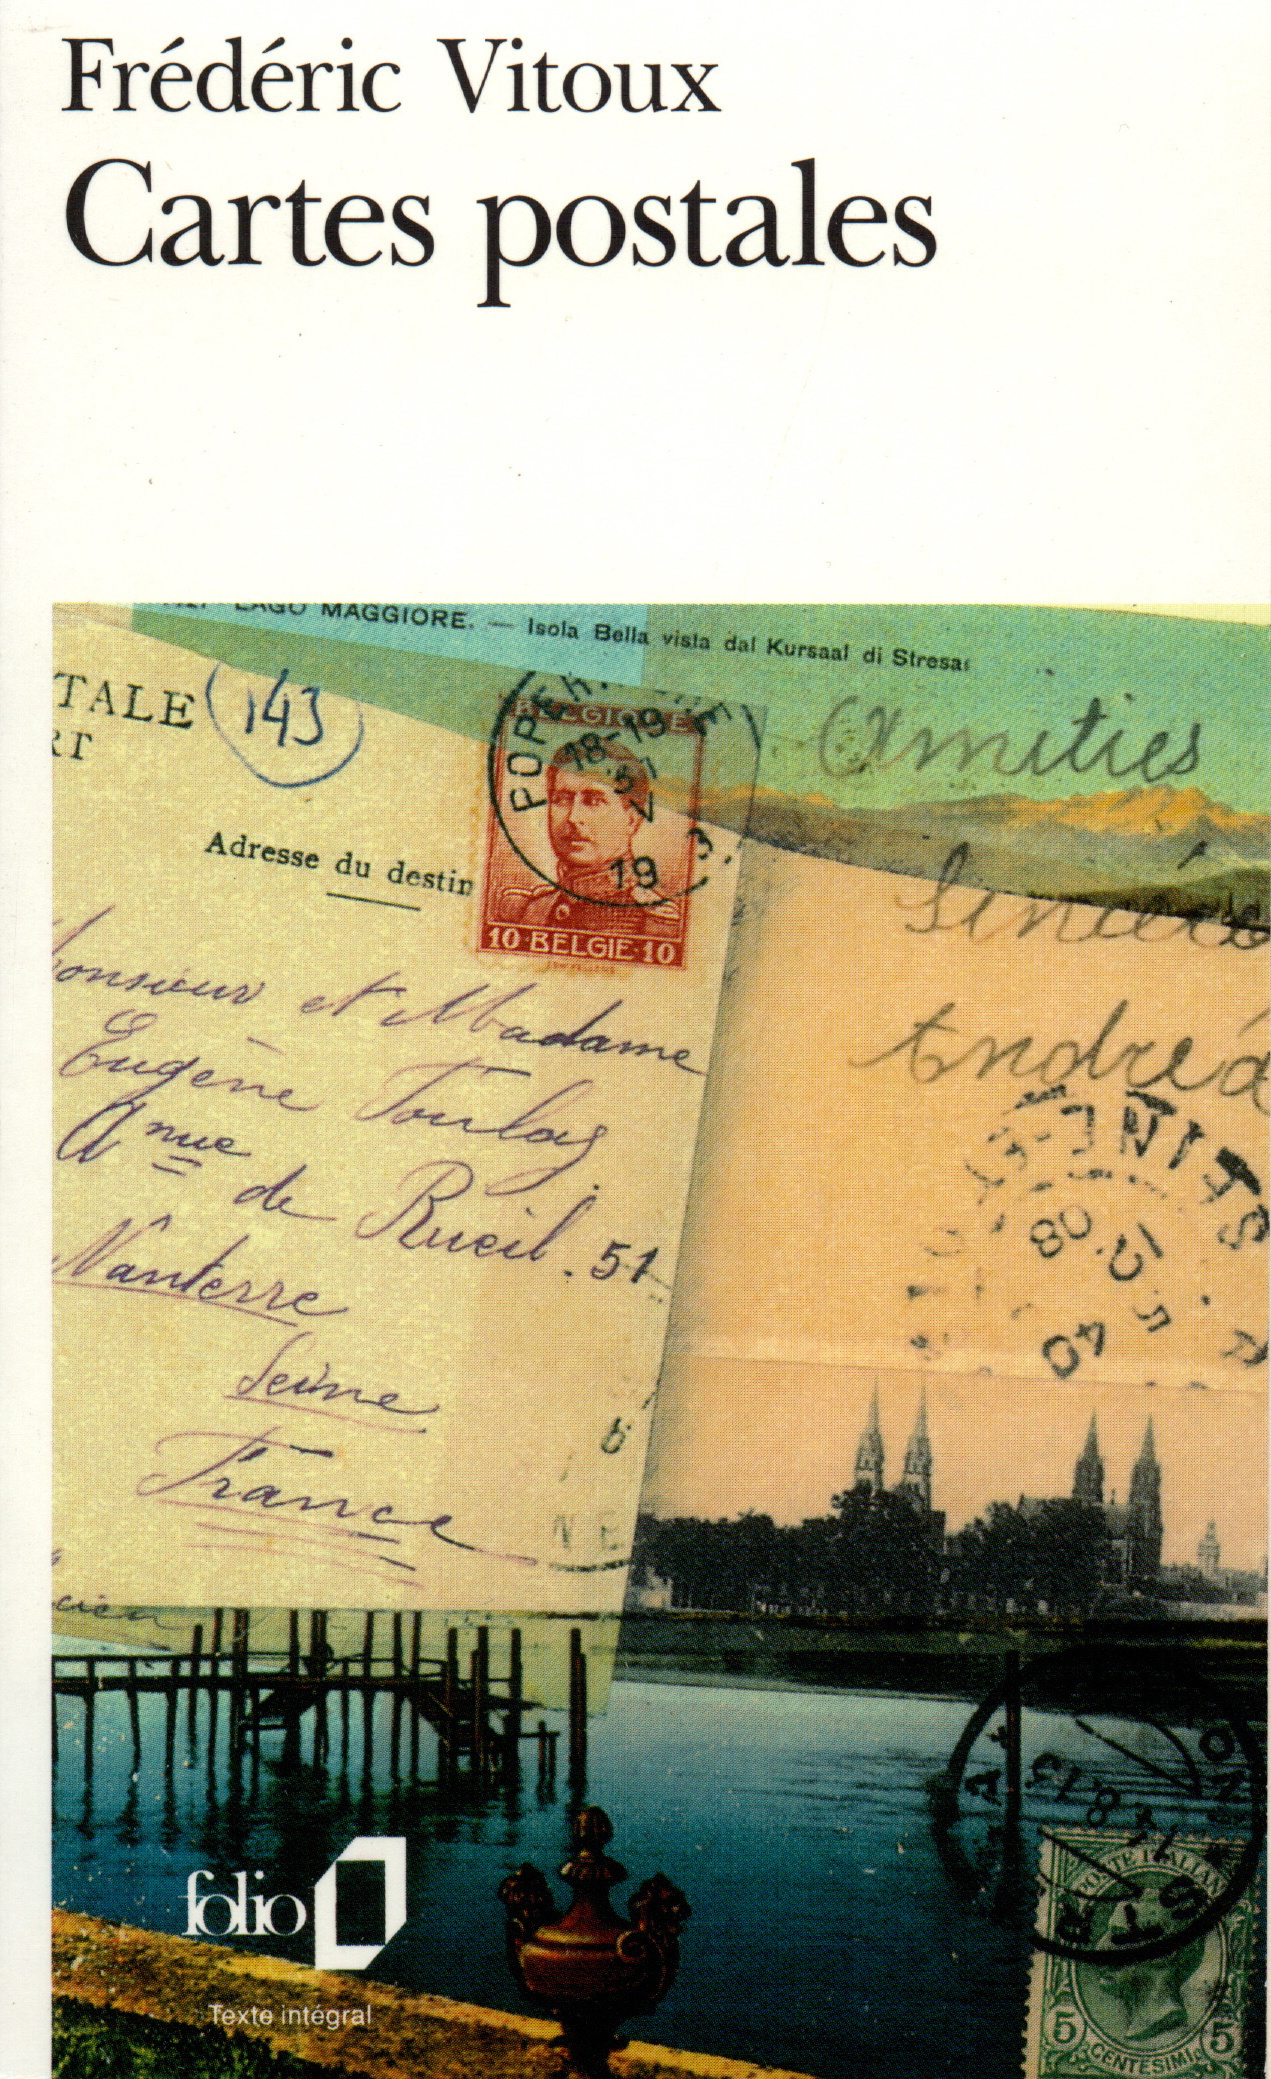 Frédéric Vitoux
Cartes postales
LAGO MAGGIORE. — Isola Bella vista dal Kursaal di Stresa
TALE
RT
143
Adresse du destin
BELGIQUE
18-19
19
3.
10 BELGIE 10
Amitiés
Sincères
Andréa
Monsieur et Madame
Eugène Toulay
Anue
de Rueil. 51
Nanterre
Seine
France
40
folio
Texte intégral
POSTE ITALIANE
5 CENTESIMI 5